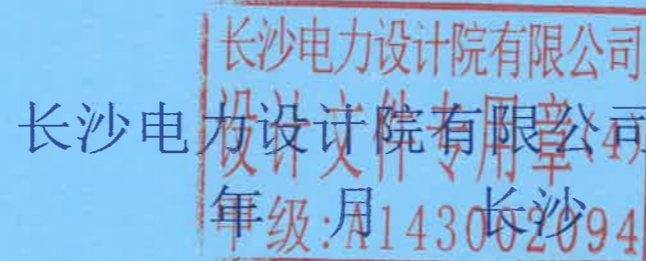 长沙电力设计院有限公司
长沙电力设计院有限公司
设计文件专用章(4)
年 月 长沙
甲级:A143002094